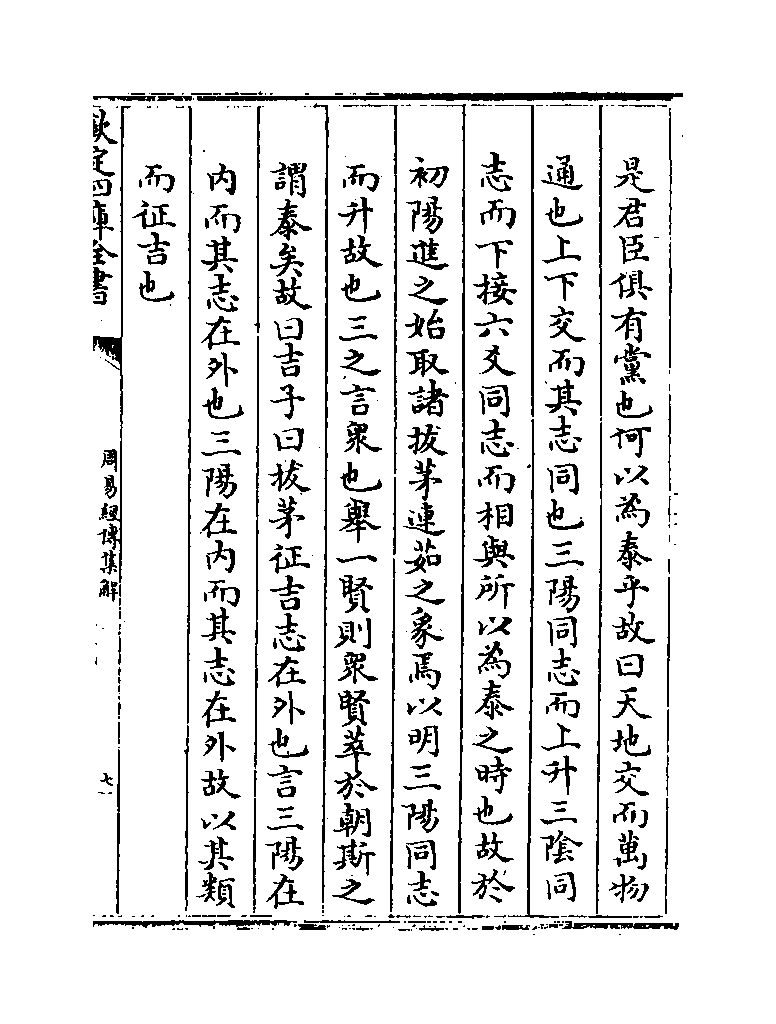 是君臣俱有黨也何以為泰乎故曰天地交而萬物
通也上下交而其志同也三陽同志而上升三陰同
志而下接六爻同志而相與所以為泰之時也故於
初陽進之始取諸拔茅連茹之象焉以明三陽同志
而升故也三之言衆也舉一賢則衆賢萃於朝斯之
謂泰矣故曰吉子曰拔茅征吉志在外也言三陽在
内而其志在外也三陽在内而其志在外故以其類
而征吉也
欽定四庫全書
周易經傳集解